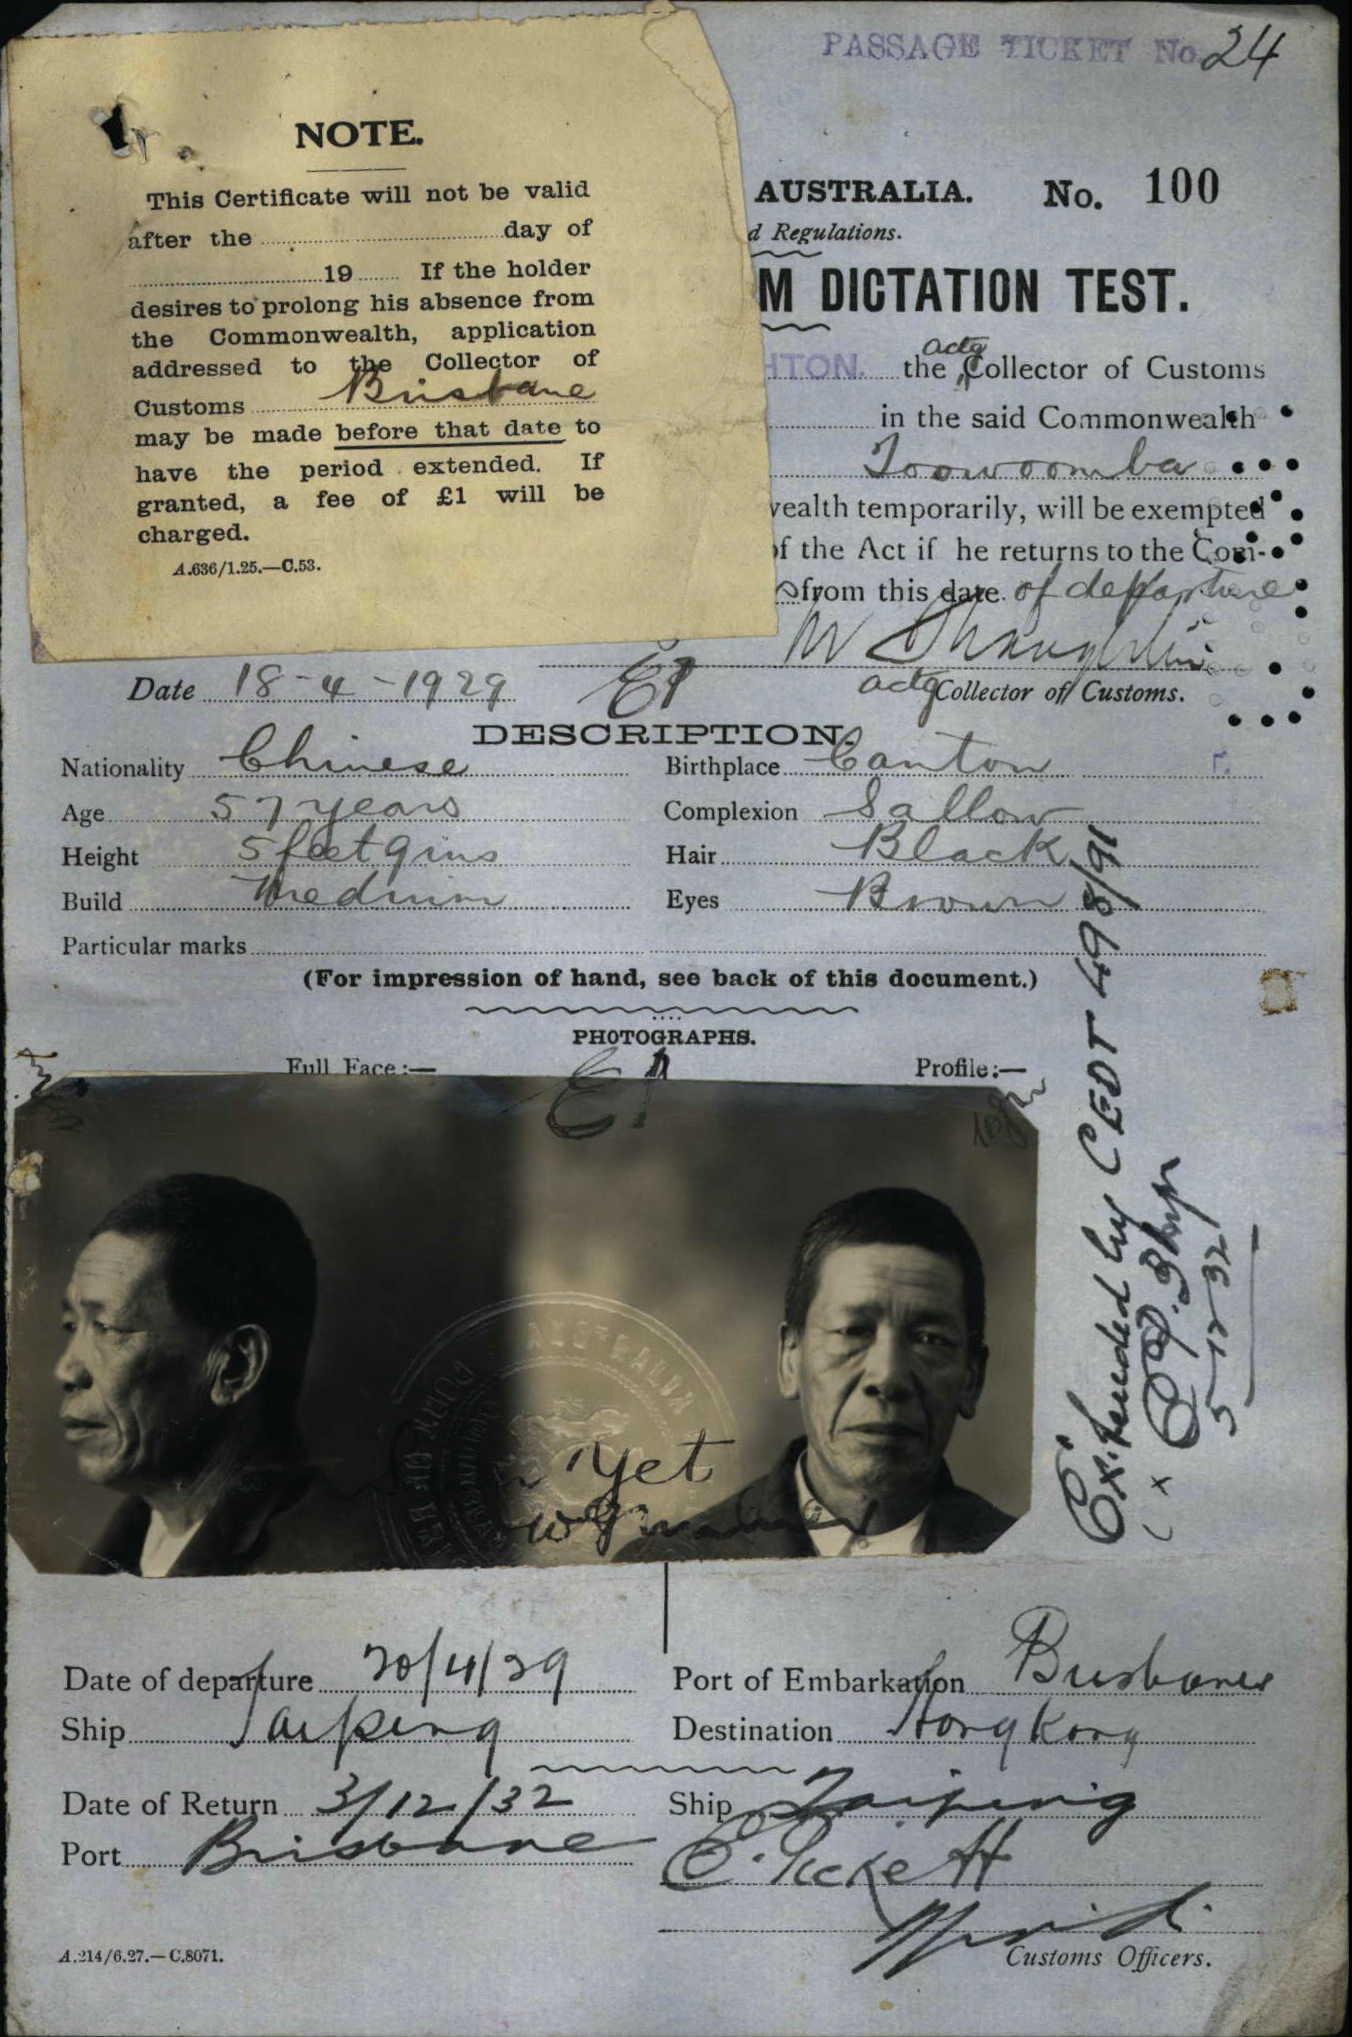 PASSAGE TICKET No. 24
NOTE.
This Certificate will not be valid
after the day of
19 If the holder
desires to prolong his absence from
the Commonwealth, application
addressed to the Collector of
Customs Brisbane
may be made before that date to
have the period extended. If
granted, a fee of £1 will be
charged.
A.636/1.25.—C.53.
AUSTRALIA. No. 100
d Regulations.
M DICTATION TEST.
HTON. the actg Collector of Customs
in the said Commonwealth
Toowoomba
wealth temporarily, will be exempted
of the Act if he returns to the Com-
from this date of departure
Date 18-4-1929
actg Collector of Customs.
DESCRIPTION.
Nationality Chinese Birthplace Canton
Age 57 years Complexion Sallow
Height 5 feet 9 ins Hair Black
Build Medium Eyes Brown
Particular marks
(For impression of hand, see back of this document.)
PHOTOGRAPHS.
Full Face:— Profile:—
Yet
Extended by CEDT 498/91
5-12-32
Date of departure 20/4/29 Port of Embarkation Brisbane
Ship Taiping Destination Hong Kong
Date of Return 3/12/32 Ship Taiping
Port Brisbane
Customs Officers.
A.214/6.27.—C.8071.